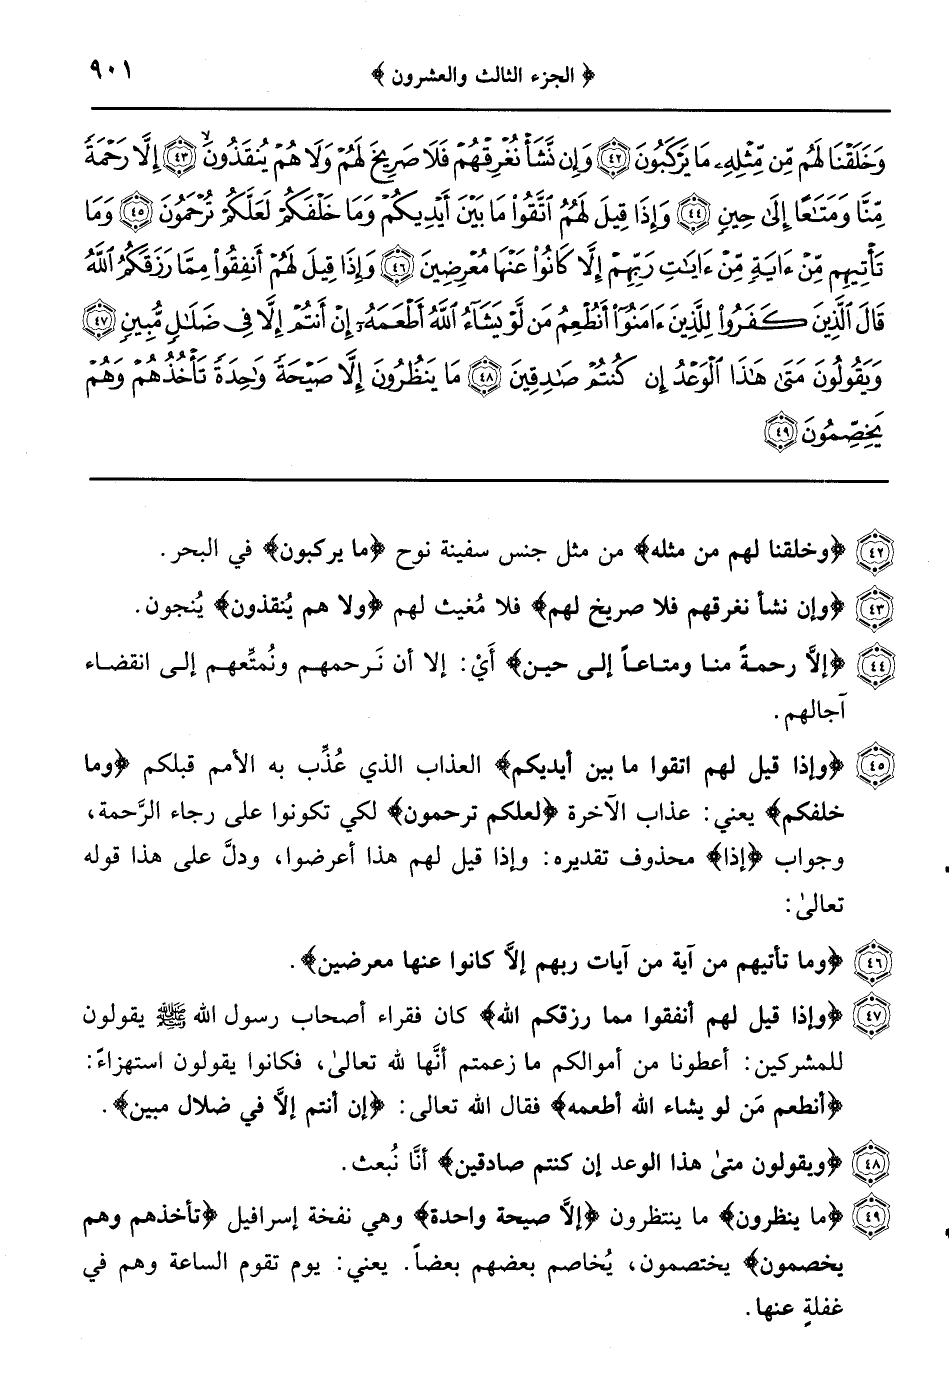 ﴿ الجزء الثالث والعشرون ﴾ ٩٠١
وَخَلَقْنَا لَهُم مِّن مِّثْلِهِۦ مَا يَرْكَبُونَ ٤٢ وَإِن نَّشَأْ نُغْرِقْهُمْ فَلَا صَرِيخَ لَهُمْ وَلَا هُمْ يُنقَذُونَ ٤٣ إِلَّا رَحْمَةً
مِّنَّا وَمَتَـٰعًا إِلَىٰ حِينٍ ٤٤ وَإِذَا قِيلَ لَهُمُ ٱتَّقُوا۟ مَا بَيْنَ أَيْدِيكُمْ وَمَا خَلْفَكُمْ لَعَلَّكُمْ تُرْحَمُونَ ٤٥ وَمَا
تَأْتِيهِم مِّنْ ءَايَةٍ مِّنْ ءَايَـٰتِ رَبِّهِمْ إِلَّا كَانُوا۟ عَنْهَا مُعْرِضِينَ ٤٦ وَإِذَا قِيلَ لَهُمْ أَنفِقُوا۟ مِمَّا رَزَقَكُمُ ٱللَّهُ
قَالَ ٱلَّذِينَ كَفَرُوا۟ لِلَّذِينَ ءَامَنُوٓا۟ أَنُطْعِمُ مَن لَّوْ يَشَآءُ ٱللَّهُ أَطْعَمَهُۥٓ إِنْ أَنتُمْ إِلَّا فِى ضَلَـٰلٍ مُّبِينٍ ٤٧
وَيَقُولُونَ مَتَىٰ هَـٰذَا ٱلْوَعْدُ إِن كُنتُمْ صَـٰدِقِينَ ٤٨ مَا يَنظُرُونَ إِلَّا صَيْحَةً وَٰحِدَةً تَأْخُذُهُمْ وَهُمْ
يَخِصِّمُونَ ٤٩
٤٢ ﴿وخلقنا لهم من مثله﴾ من مثل جنس سفينة نوح ﴿ما يركبون﴾ في البحر.
٤٣ ﴿وإن نشأ نغرقهم فلا صريخ لهم﴾ فلا مُغيث لهم ﴿ولا هم يُنقذون﴾ يُنجون.
٤٤ ﴿إلاَّ رحمةً منا ومتاعاً إلى حين﴾ أَيْ: إلا أن نَرحمهم ونُمتِّعهم إلى انقضاء
آجالهم.
٤٥ ﴿وإذا قيل لهم اتقوا ما بين أيديكم﴾ العذاب الذي عُذِّب به الأمم قبلكم ﴿وما
خلفكم﴾ يعني: عذاب الآخرة ﴿لعلكم ترحمون﴾ لكي تكونوا على رجاء الرَّحمة،
وجواب ﴿إذا﴾ محذوف تقديره: وإذا قيل لهم هذا أعرضوا، ودلَّ على هذا قوله
تعالىٰ:
٤٦ ﴿وما تأتيهم من آية من آيات ربهم إلاَّ كانوا عنها معرضين﴾.
٤٧ ﴿وإذا قيل لهم أنفقوا مما رزقكم الله﴾ كان فقراء أصحاب رسول الله ﷺ يقولون
للمشركين: أعطونا من أموالكم ما زعمتم أنَّها لله تعالىٰ، فكانوا يقولون استهزاءً:
﴿أنطعم مَن لو يشاء الله أطعمه﴾ فقال الله تعالى: ﴿إن أنتم إلاَّ في ضلال مبين﴾.
٤٨ ﴿ويقولون متىٰ هذا الوعد إن كنتم صادقين﴾ أنَّا نُبعث.
٤٩ ﴿ما ينظرون﴾ ما ينتظرون ﴿إلاَّ صيحة واحدة﴾ وهي نفخة إسرافيل ﴿تأخذهم وهم
يخصمون﴾ يختصمون، يُخاصم بعضهم بعضاً. يعني: يوم تقوم الساعة وهم في
غفلةٍ عنها.